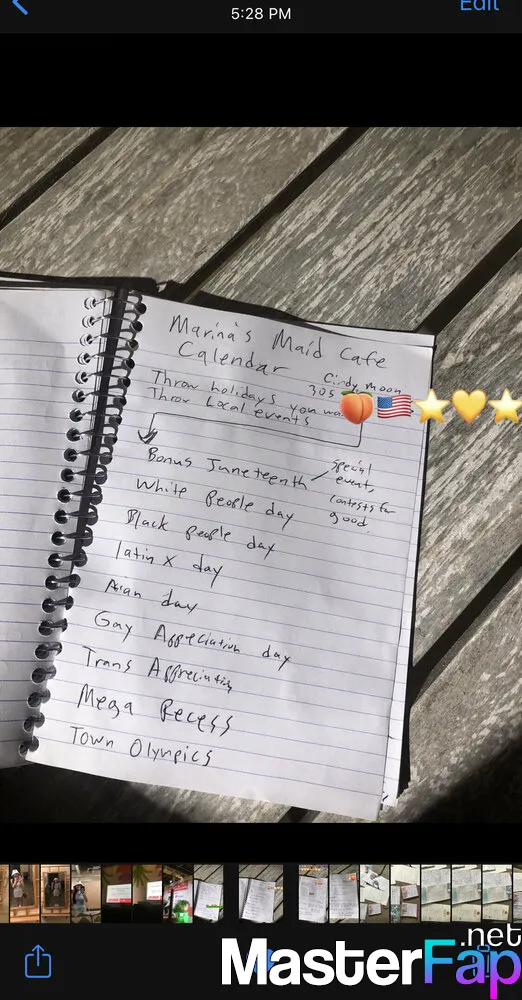 5:28 PM
Edit
Marina's Maid Cafe
Calendar
Cindy moon
305
Throw holidays you
Throw Local events
Bonus Juneteenth
special
event,
contests for
good
White People day
Black people day
latin x day
Asian day
Gay Appreciation day
Trans Appreciation
Mega Recess
Town Olympics
.net
MasterFap